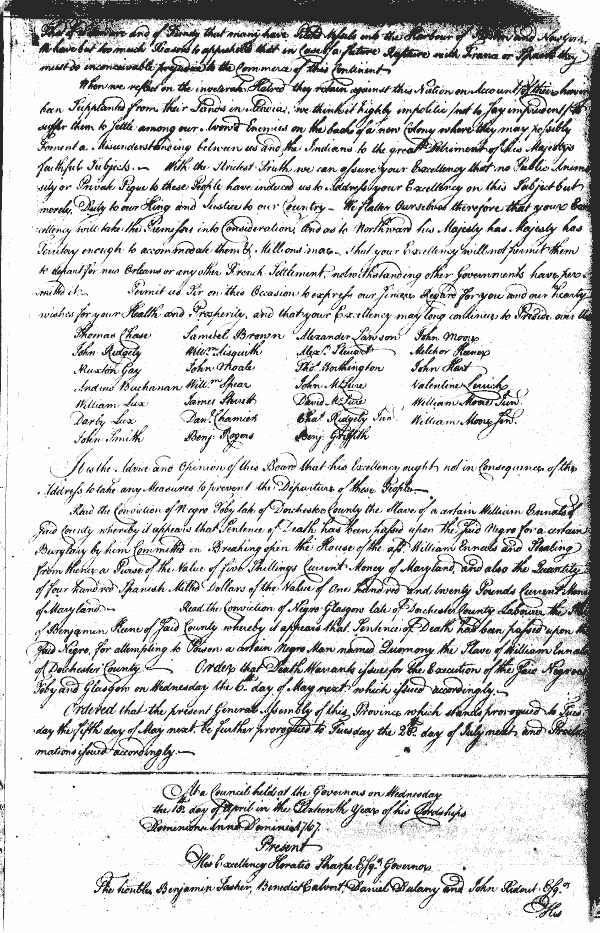 of Delaware and of Fundy that many have Vessels into the Harbour of and New York
We have but too much Reason to apprehend that in Case of a future Rupture with France or Spain they
must do inconceivable prejudice to the Commerce of this Continent
When we reflect on the inveterate Hatred they retain against this Nation on Account of their having
been Supplanted from their Lands in we think it highly impolitic (not to say imprudent) to
suffer them to settle among our Avow'd Enemies on the back of a new Colony where they may possibly
Foment a Misunderstanding between us and the Indians to the great Detriment of his Majestys
faithful Subjects. — With the Strictest Truth we can assure your Excellency that no Public Animo
sity or Private Pique to these People have induced us to Address your Excellency on this Subject but
merely Duty to our King and Justice to our Country — We flatter Ourselves therefore that your Exce
ellency will take the Premises into Consideration, and as to Northward his Majesty has Majesty has
Territory enough to accommodate them & Millions more that your Excellency will not permit them
to depart for new Orleans or any other French Settlement notwithstanding other Governments have per
mitted it. Permit us Sir on this Occasion to express our Sincere Regard for you and our hearty
wishes for your Health and Prosperity, and that your Excellency may long continue to Preside over the
Thomas Chase Samuel Brown Alexander Lawson John Moore
John Ridgely Willm. Aisquith Alexr. Stewart Melchor Keener
Ruxton Gay John Moale Thos. Worthington John Hart
Andrew Buchanan Willm. Spear John McLure Valentine
William Lux James Sterett David McLure William Moore Jun.
Darby Lux Danl. Chamier Chas. Ridgely Jun. William Moore Sen.
John Smith Benj. Rogers Benj. Griffith
It is the Advice and Opinion of this Board that his Excellency ought not in Consequence of the
Address to take any Measures to prevent the Departure of these People —
Read the Conviction of Negro Toby late of Dorchester County the Slave of a certain William Ennals of
said County whereby it appears that Sentence of Death has been passed upon the said Negro for a certain
Burglary by him Committed in Breaking open the House of the afd. William Ennals and Stealing
from thence a Purse of the Value of five Shillings Current Money of Maryland, and also the Quantity
of four hundred Spanish Milled Dollars of the Value of One hundred and twenty Pounds Current Money
of Maryland — Read the Conviction of Negro Glasgow late of Dorchester County Labourer the
of Benjamin Keene of said County whereby it appears that Sentence of Death had been passed upon the
said Negro, for attempting to Poison a certain Negro Man named Quomony the Slave of William Ennals
of Dorchester County Order'd that Death Warrants issue for the Execution of the said Negroes
Toby and Glasgow on Wednesday the 6th. day of May next which issued accordingly. —
Ordered that the present General Assembly of this Province which stands prorogued to Tues
day the fifth day of May next be further prorogued to Tuesday the 28th. day of July next and Procla
mations issued accordingly —
At a Council held at the Governors on Wednesday
the 15th. day of April in the Sixteenth Year of his Lordships
Dominion Anno Domini 1767.
Present
His Excellency Horatio Sharpe Esqr. Governor
The honbles. Benjamin Tasker, Benedict Calvert, Daniel Dulany and John Ridout Esqrs.
His